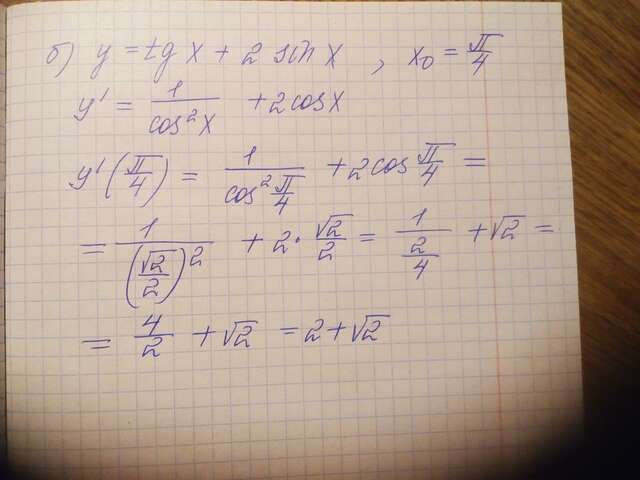 б) y = tg x + 2 sin x , x₀ = π/4
y' = 1/cos²x + 2cosx
y'(π/4) = 1/cos² π/4 + 2cos π/4 =
= 1/(√2/2)² + 2·√2/2 = 1/(2/4) + √2 =
= 4/2 + √2 = 2+√2